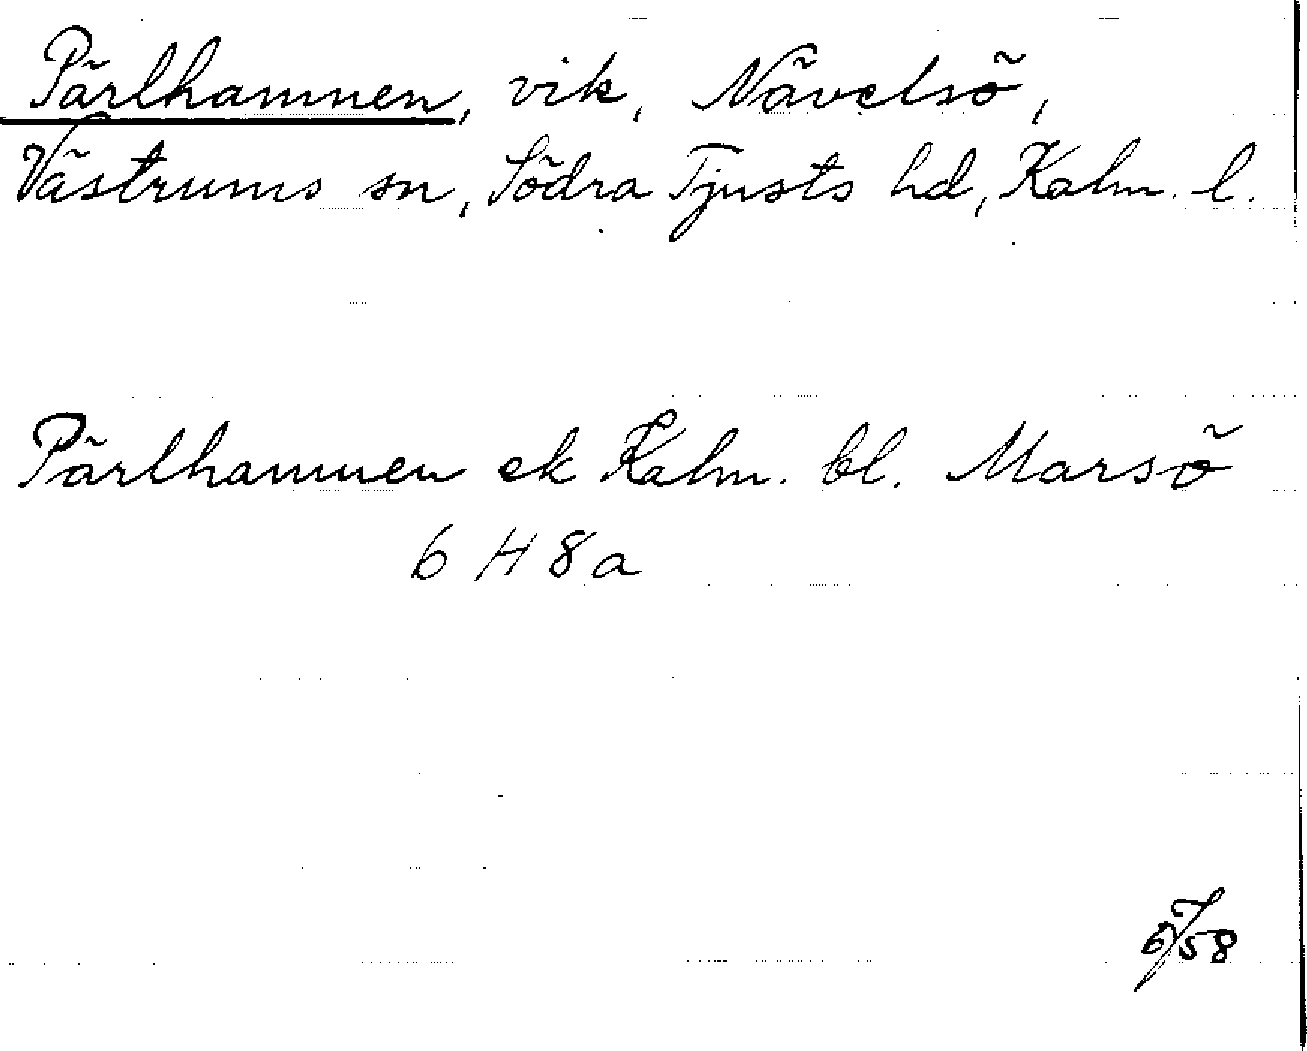 Pärlhamnen, vik, Nävelsö,
Västrums sn, Södra Tjusts hd, Kalm. l.
Pärlhamnen ek Kalm. bl. Marsö
6 H 8a
58